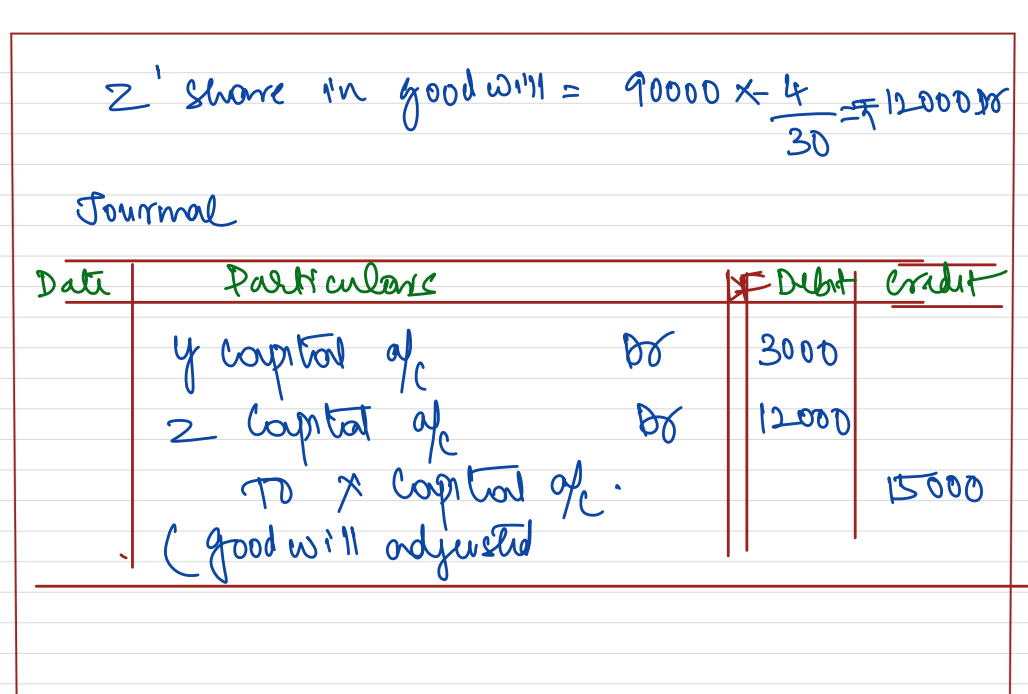 Z' share in goodwill = 90000 × 4/30 = ₹ 12000 Dr
Journal
Date Particulars LF Debit Credit
Y capital a/c Dr 3000
Z Capital a/c Dr 12000
To X Capital a/c. 15000
(goodwill adjusted